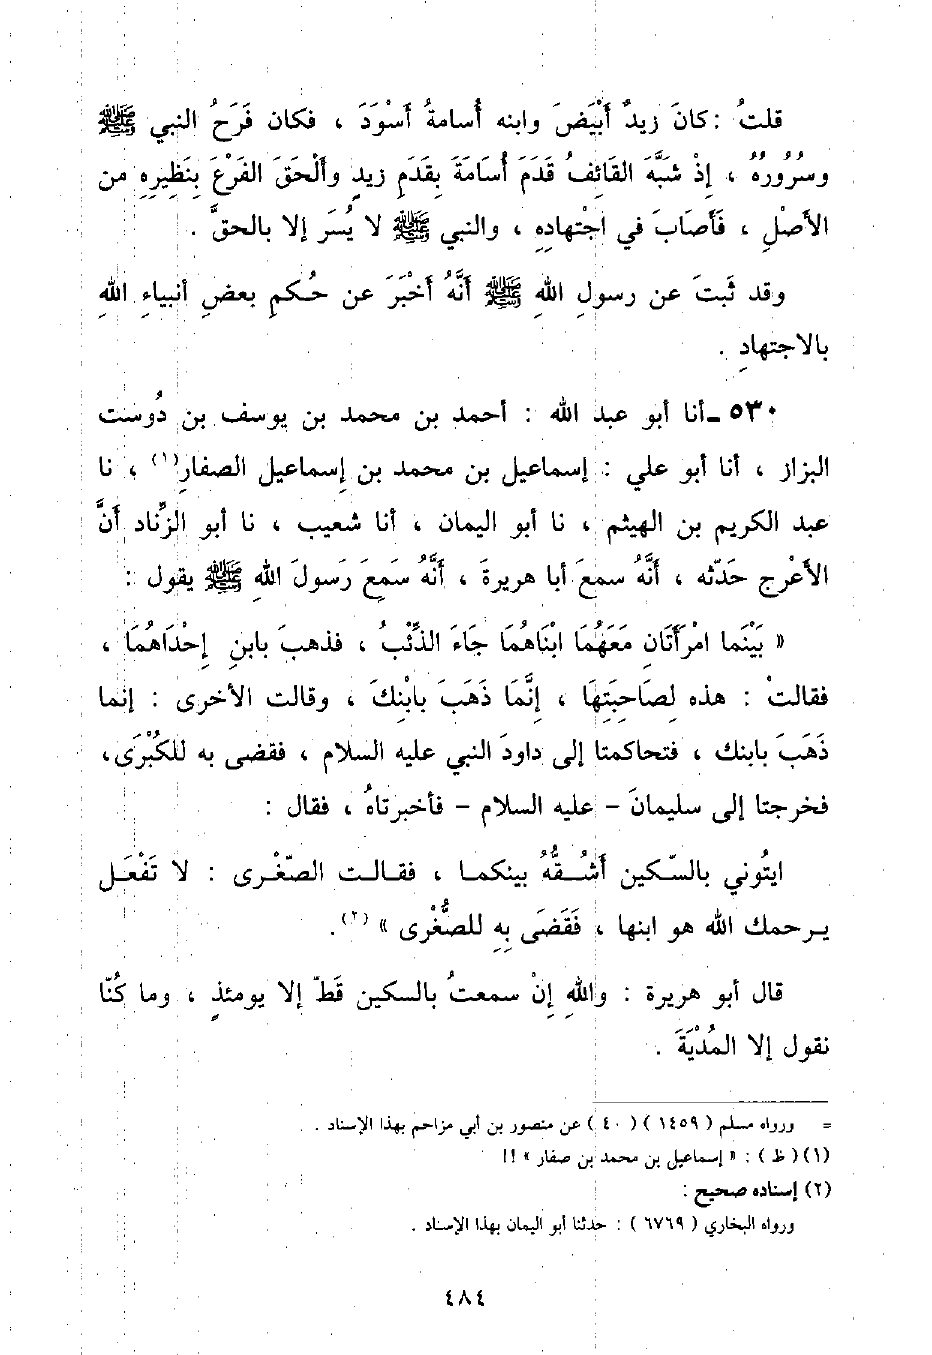 قلتُ : كانَ زيدٌ أَبْيَضَ وابنه أُسامةُ أَسْوَدَ ، فكان فَرَحُ النبي ﷺ
وسُرُورُهُ ، إِذْ شَبَّهَ القَائفُ قَدَمَ أُسَامَةَ بِقَدَمِ زيدٍ وأَلْحَقَ الفَرْعَ بِنَظِيرِهِ من
الأَصْلِ ، فَأَصَابَ في اجْتهادِهِ ، والنبي ﷺ لا يُسَر إلا بالحقَّ .
وقد ثَبتَ عن رسولِ اللهِ ﷺ أَنَّهُ أَخْبَرَ عن حُكمِ بعضِ أنبياءِ اللهِ
بالاجتهادِ .
٥٣٠ ـ أنا أبو عبد الله : أحمد بن محمد بن يوسف بن دُوست
البزاز ، أنا أبو علي : إسماعيل بن محمد بن إسماعيل الصفارِ(١) ، نا
عبد الكريم بن الهيثم ، نا أبو اليمان ، أنا شعيب ، نا أبو الزِّناد أَنَّ
الأَعْرج حَدّثه ، أَنَّهُ سمعَ أبا هريرةَ ، أَنَّهُ سَمِعَ رَسولَ اللهِ ﷺ يقول :
« بَيْنَما امْرأَتَانِ مَعَهُمَا ابْنَاهُمَا جَاءَ الذِّئْبُ ، فذهبَ بابنِ إِحْدَاهُمَا ،
فقالتْ : هذه لِصَاحِبَتِهَا ، إِنَّمَا ذَهَبَ بابْنِكَ ، وقالت الأخرى : إنما
ذَهَبَ بابنك ، فتحاكمتا إلى داودَ النبي عليه السلام ، فقضى به للكُبْرَى،
فخرجتا إلى سليمانَ - عليه السلام - فأخبرتاهُ ، فقال :
ايتُوني بالسّكين أَشُـقُّهُ بينكمـا ، فقـالـت الصّغْـرى : لا تَفْعَـل
يـرحمك الله هو ابنها ، فَقَضَى بِهِ للصُّغْرى » (٢).
قال أبو هريرة : واللهِ إِنْ سمعتُ بالسكين قَطّ إلا يومئذٍ ، وما كُنّا
نقول إلا المُدْيَةَ .
= ورواه مسلم ( ١٤٥٩ ) ( ٤٠ ) عن منصور بن أبي مزاحم بهذا الإسناد .
(١) ( ظ ) : « إسماعيل بن محمد بن صفار » !!
(٢) إسناده صحيح :
ورواه البخاري ( ٦٧٦٩ ) : حدثنا أبو اليمان بهذا الإسناد .
٤٨٤